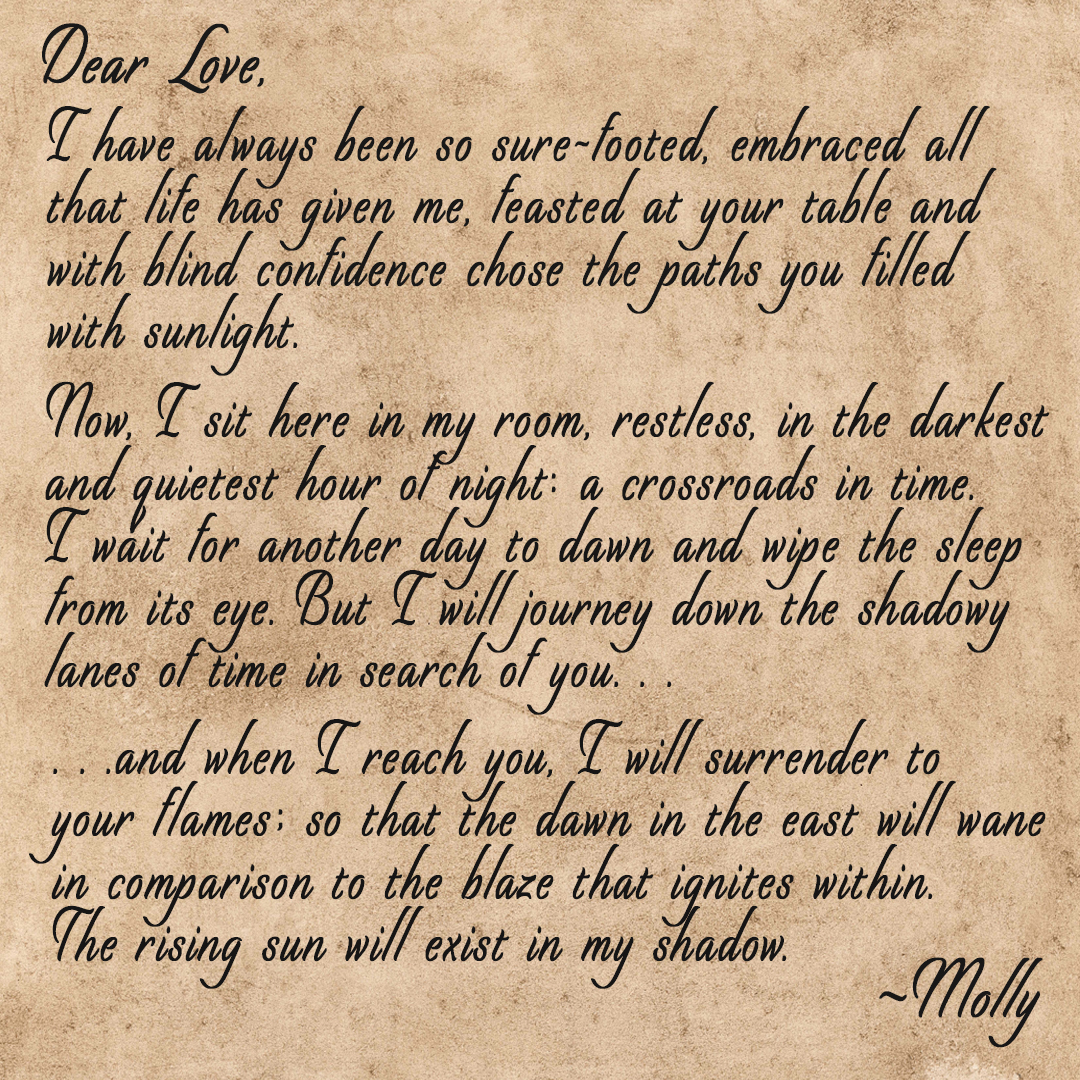 Dear Love,
I have always been so sure~footed, embraced all
that life has given me, feasted at your table and
with blind confidence chose the paths you filled
with sunlight.
Now, I sit here in my room, restless, in the darkest
and quietest hour of night: a crossroads in time.
I wait for another day to dawn and wipe the sleep
from its eye. But I will journey down the shadowy
lanes of time in search of you. . .
. . .and when I reach you, I will surrender to
your flames; so that the dawn in the east will wane
in comparison to the blaze that ignites within.
The rising sun will exist in my shadow.
~Molly